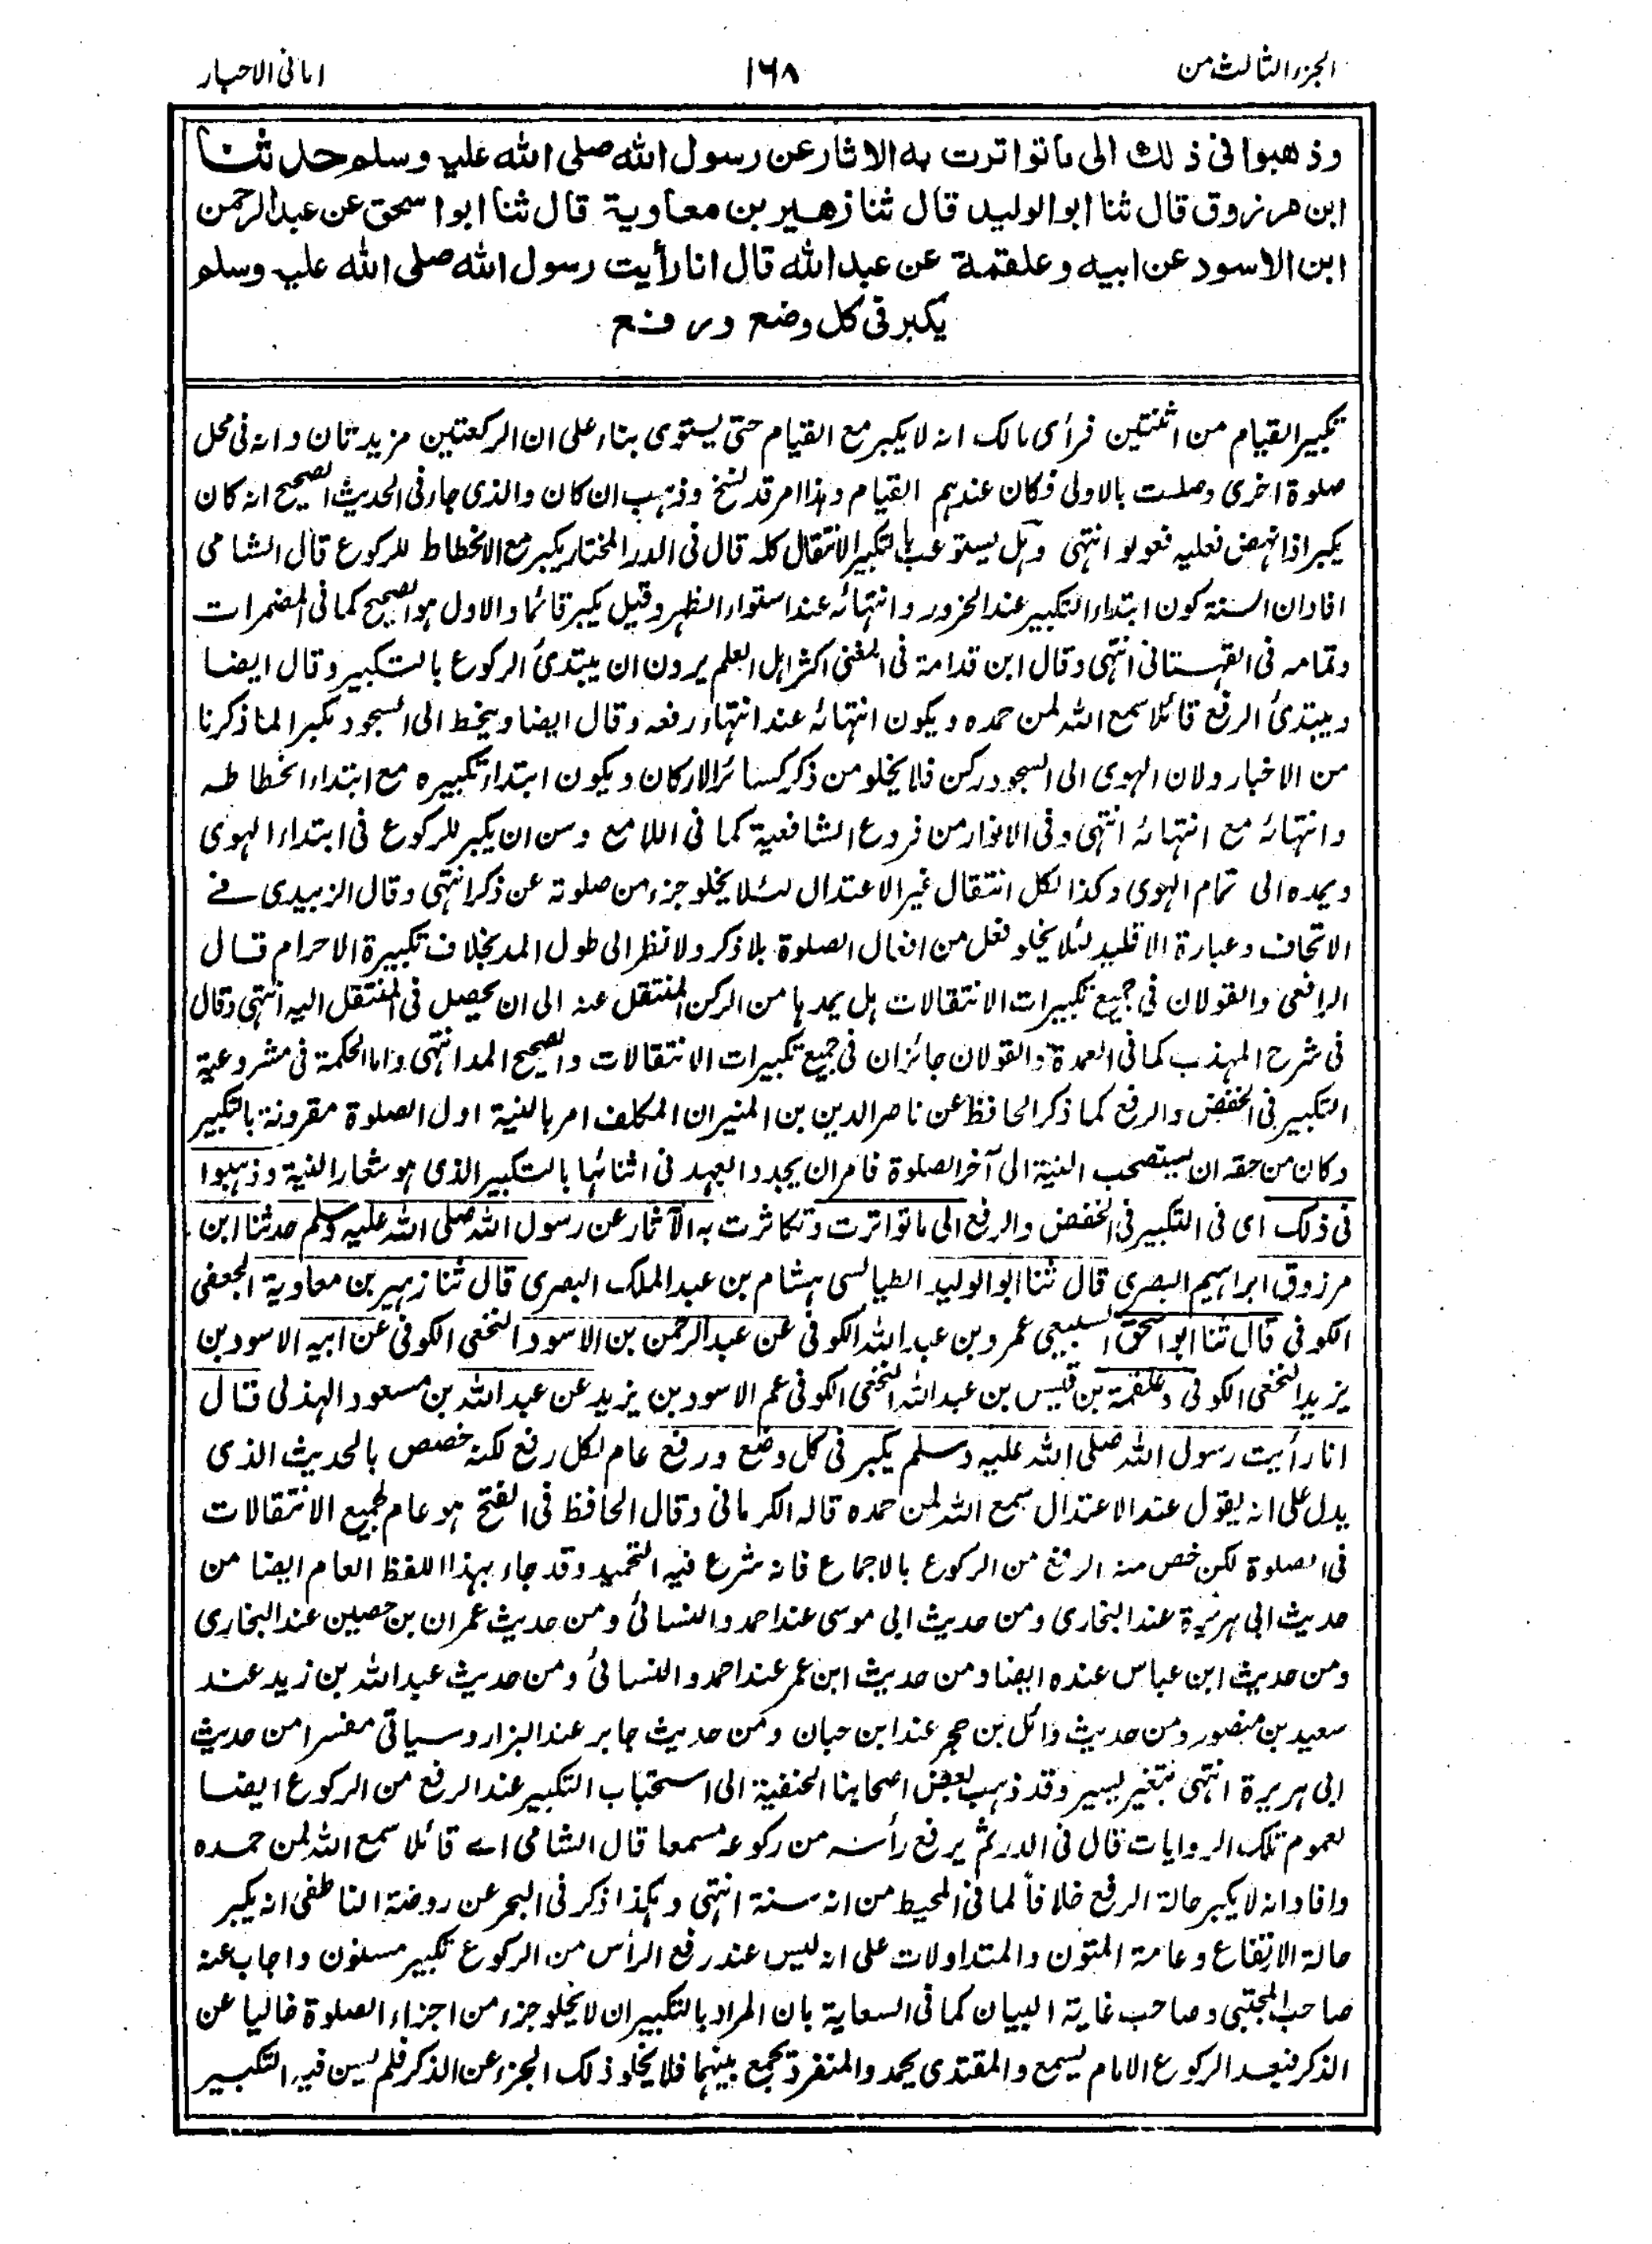 الجزء الثالث من
١٦٨
امانى الاحبار
وذهبوا فى ذلك الى ما تواترت به الاثار عن رسول الله صلى الله عليه وسلم حدثنا
ابن مرزوق قال ثنا ابو الوليد قال ثنا زهير بن معاوية قال ثنا ابو اسحق عن عبد الرحمن
ابن الاسود عن ابيه وعلقمة عن عبد الله قال انا رأيت رسول الله صلى الله عليه وسلم
يكبر فى كل وضع ورفع
تكبير القيام من اثنتين فرأى مالك انه لا يكبر مع القيام حتى يستوى بناء على ان الركعتين مزيدتان وانه فى محل
صلوة اخرى وصلت بالاولى فكان عندهم القيام وهذا امر قد نسخ وذهب ان كان والذى جاء فى الحديث الصحيح انه كان
يكبر اذا نهض فعليه فعولوا انتهى وهل يستوعب بالتكبير الانتقال كله قال فى الدر المختار يكبر مع الانحطاط للركوع قال الشامى
افاد ان السنة كون ابتداء التكبير عند الخرور وانتهائه عند استواء الظهر وقيل يكبر قائما والاول هو الصحيح كما فى المضمرات
وتمامه فى القهستانى انتهى وقال ابن قدامة فى المغنى اكثر اهل العلم يرون ان يبتدئ الركوع بالتكبير وقال ايضا
ويبتدئ الرفع قائلا سمع الله لمن حمده ويكون انتهائه عند انتهاء رفعه وقال ايضا وينحط الى السجود مكبرا لما ذكرنا
من الاخبار ولان الهوى الى السجود ركن فلا يخلو من ذكر كسائر الاركان ويكون ابتداء تكبيره مع ابتداء انحطاطه
وانتهائه مع انتهائه انتهى وفى الانوار من فروع الشافعية كما فى اللامع وسن ان يكبر للركوع فى ابتداء الهوى
ويمده الى تمام الهوى وكذا لكل انتقال غير الاعتدال لئلا يخلو جزء من صلوته عن ذكر انتهى وقال الزبيدى فى
الاتحاف وعبارة الاقليد لئلا يخلو فعل من افعال الصلوة بلا ذكر ولا نظر الى طول المد بخلاف تكبيرة الاحرام قال
الرافعى والقولان فى جميع تكبيرات الانتقالات هل يمدها من الركن المنتقل عنه الى ان يحصل فى المنتقل اليه انتهى وقال
فى شرح المهذب كما فى العمدة والقولان جائزان فى جميع تكبيرات الانتقالات والصحيح المد انتهى واما الحكمة فى مشروعية
التكبير فى الخفض والرفع كما ذكر الحافظ عن ناصر الدين بن المنير ان المكلف امر بالنية اول الصلوة مقرونة بالتكبير
وكان من حقه ان يستصحب النية الى آخر الصلوة فامر ان يجدد العهد فى اثنائها بالتكبير الذى هو شعار النية وذهبوا
فى ذلك اى فى التكبير فى الخفض والرفع الى ما تواترت وتكاثرت به الآثار عن رسول الله صلى الله عليه وسلم حدثنا ابن
مرزوق ابراهيم البصرى قال ثنا ابو الوليد الطيالسى هشام بن عبد الملك البصرى قال ثنا زهير بن معاوية الجعفى
الكوفى قال ثنا ابو اسحق السبيعى عمرو بن عبد الله الكوفى عن عبد الرحمن بن الاسود النخعى الكوفى عن ابيه الاسود بن
يزيد النخعى الكوفى وعلقمة بن قيس بن عبد الله النخعى الكوفى عم الاسود بن يزيد عن عبد الله بن مسعود الهذلى قال
انا رأيت رسول الله صلى الله عليه وسلم يكبر فى كل وضع ورفع عام لكل رفع لكنه خصص بالحديث الذى
يدل على انه يقول عند الاعتدال سمع الله لمن حمده قاله الكرمانى وقال الحافظ فى الفتح هو عام لجميع الانتقالات
فى الصلوة لكن خص منه الرفع من الركوع بالاجماع فانه شرع فيه التحميد وقد جاء بهذا اللفظ العام ايضا من
حديث ابى هريرة عند البخارى ومن حديث ابى موسى عند احمد والنسائى ومن حديث عمران بن حصين عند البخارى
ومن حديث ابن عباس عنده ايضا ومن حديث ابن عمر عند احمد والنسائى ومن حديث عبد الله بن زيد عند
سعيد بن منصور ومن حديث وائل بن حجر عند ابن حبان ومن حديث جابر عند البزار وسياتى مفسرا من حديث
ابى هريرة انتهى بتغير يسير وقد ذهب بعض اصحابنا الحنفية الى استحباب التكبير عند الرفع من الركوع ايضا
لعموم تلك الروايات قال فى الدر ثم يرفع رأسه من ركوعه مسمعا قال الشامى اے قائلا سمع الله لمن حمده
وافاد انه لا يكبر حالة الرفع خلافا لما فى المحيط من انه سنة انتهى وهكذا ذكر فى البحر عن روضة الناطفى انه يكبر
حالة الارتفاع وعامة المتون والمتداولات على انه ليس عند رفع الرأس من الركوع تكبير مسنون واجاب عنه
صاحب المجتبى وصاحب غاية البيان كما فى السعاية بان المراد بالتكبير ان لا يخلو جزء من اجزاء الصلوة خاليا عن
الذكر فبعد الركوع الامام يسمع والمقتدى يحمد والمنفرد يجمع بينهما فلا يخلو ذلك الجزء عن الذكر فلم يسن فيه التكبير